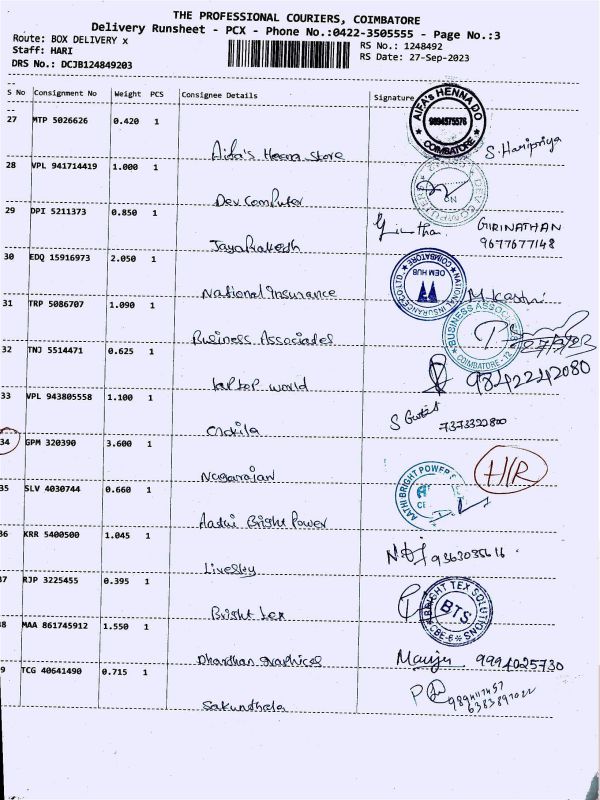 THE PROFESSIONAL COURIERS, COIMBATORE
Delivery Runsheet - PCX - Phone No.:0422-3505555 - Page No.:3
Route: BOX DELIVERY x
RS No.: 1248492
Staff: HARI
RS Date: 27-Sep-2023
DRS No.: DCJB124849203
S No Consignment No Weight PCS Consignee Details Signature
27 MTP 5026626 0.420 1
Aifa's Henna Store
AIFA'S HENNA DO
9894575576
COIMBATORE
S. Haripriya
28 VPL 941714419 1.000 1
Dev Computer
DEV COMPUTER
29 DPI 5211373 0.850 1
JayaPrakash
GIRINATHAN
9677677148
30 EDQ 15916973 2.050 1
National Insurance
NATIONAL INSURANCE CO LTD.
OEM HUB
COIMBATORE
31 TRP 5086707 1.090 1
Business Associates
BUSINESS ASSOCIATES
COIMBATORE - 12
32 TNJ 5514471 0.625 1
laptop world
9842242080
33 VPL 943805558 1.100 1
7373322800
34 GPM 320390 3.600 1
Nagarajan
35 SLV 4030744 0.660 1
Aathi Bright Power
AATHI BRIGHT POWER
36 KRR 5400500 1.045 1
Livesky
37 RJP 3225455 0.395 1
Bright tex
BRIGHT TEX SOLUTIONS
BTS.
CBE-6
38 MAA 861745912 1.550 1
Dhardhan graphices
9994025730
39 TCG 40641490 0.715 1
Sakunthela